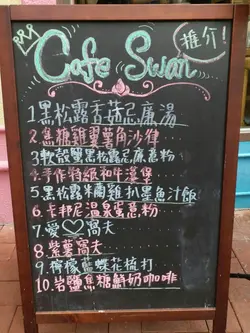 Cafe Swan
推介!
1黑松露香菇忌廉湯
2.焦糖雞翼薯角沙律
3軟殼蟹黑松露忌廉意粉
4.手作特級和牛漢堡
5黑松露米蘭雞扒墨魚汁飯
6.卡邦尼溫泉蛋意粉
7.愛♡窩夫
8.紫薯窩夫
9檸檬藍蝶花梳打
10.岩鹽焦糖鮮奶咖啡